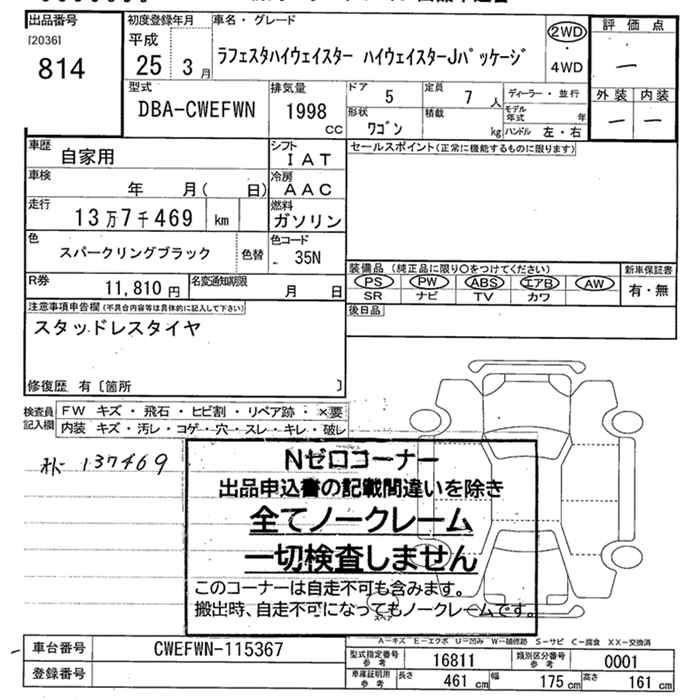 出品番号
[2036]
814
初度登録年月
平成
25 3月
車名・グレード
ラフェスタハイウェイスター ハイウェイスターJパッケージ
2WD
・
4WD
評価点
―
外装 内装
― ―
型式
DBA-CWEFWN
排気量
1998
cc
ドア
5
定員
7 人
形状
ワゴン
積載
kg
ディーラー・並行
モデル年式 年
ハンドル 左・右
車歴
自家用
シフト
IAT
車検
年 月( 日)
冷房
AAC
走行
13万7千469 km
燃料
ガソリン
色
スパークリングブラック
色替
色コード
35N
R券
11,810円
名変通知期限
月 日
セールスポイント(正常に機能するものに限ります)
装備品 (純正品に限り○をつけてください)
PS PW ABS エアB AW
SR ナビ TV カワ
新車保証書
有・無
後日品
注意事項申告欄(不具合内容等は具体的に記入して下さい)
スタッドレスタイヤ
修復歴 有〔箇所 〕
検査員記入欄
FW キズ・飛石・ヒビ割・リペア跡・×要
内装 キズ・汚レ・コゲ・穴・スレ・キレ・破レ
137469
Nゼロコーナー
出品申込書の記載間違いを除き
全てノークレーム
一切検査しません
このコーナーは自走不可も含みます。
搬出時、自走不可になってもノークレームです。
スペア
A-キズ E-エクボ U-凹み W-補修跡 S-サビ C-腐食 XX-交換済
車台番号
CWEFWN-115367
登録番号
型式指定番号
参考
16811
類別区分番号
参考
0001
車庫証明用
参考
長さ 461 cm 幅 175 cm 高さ 161 cm